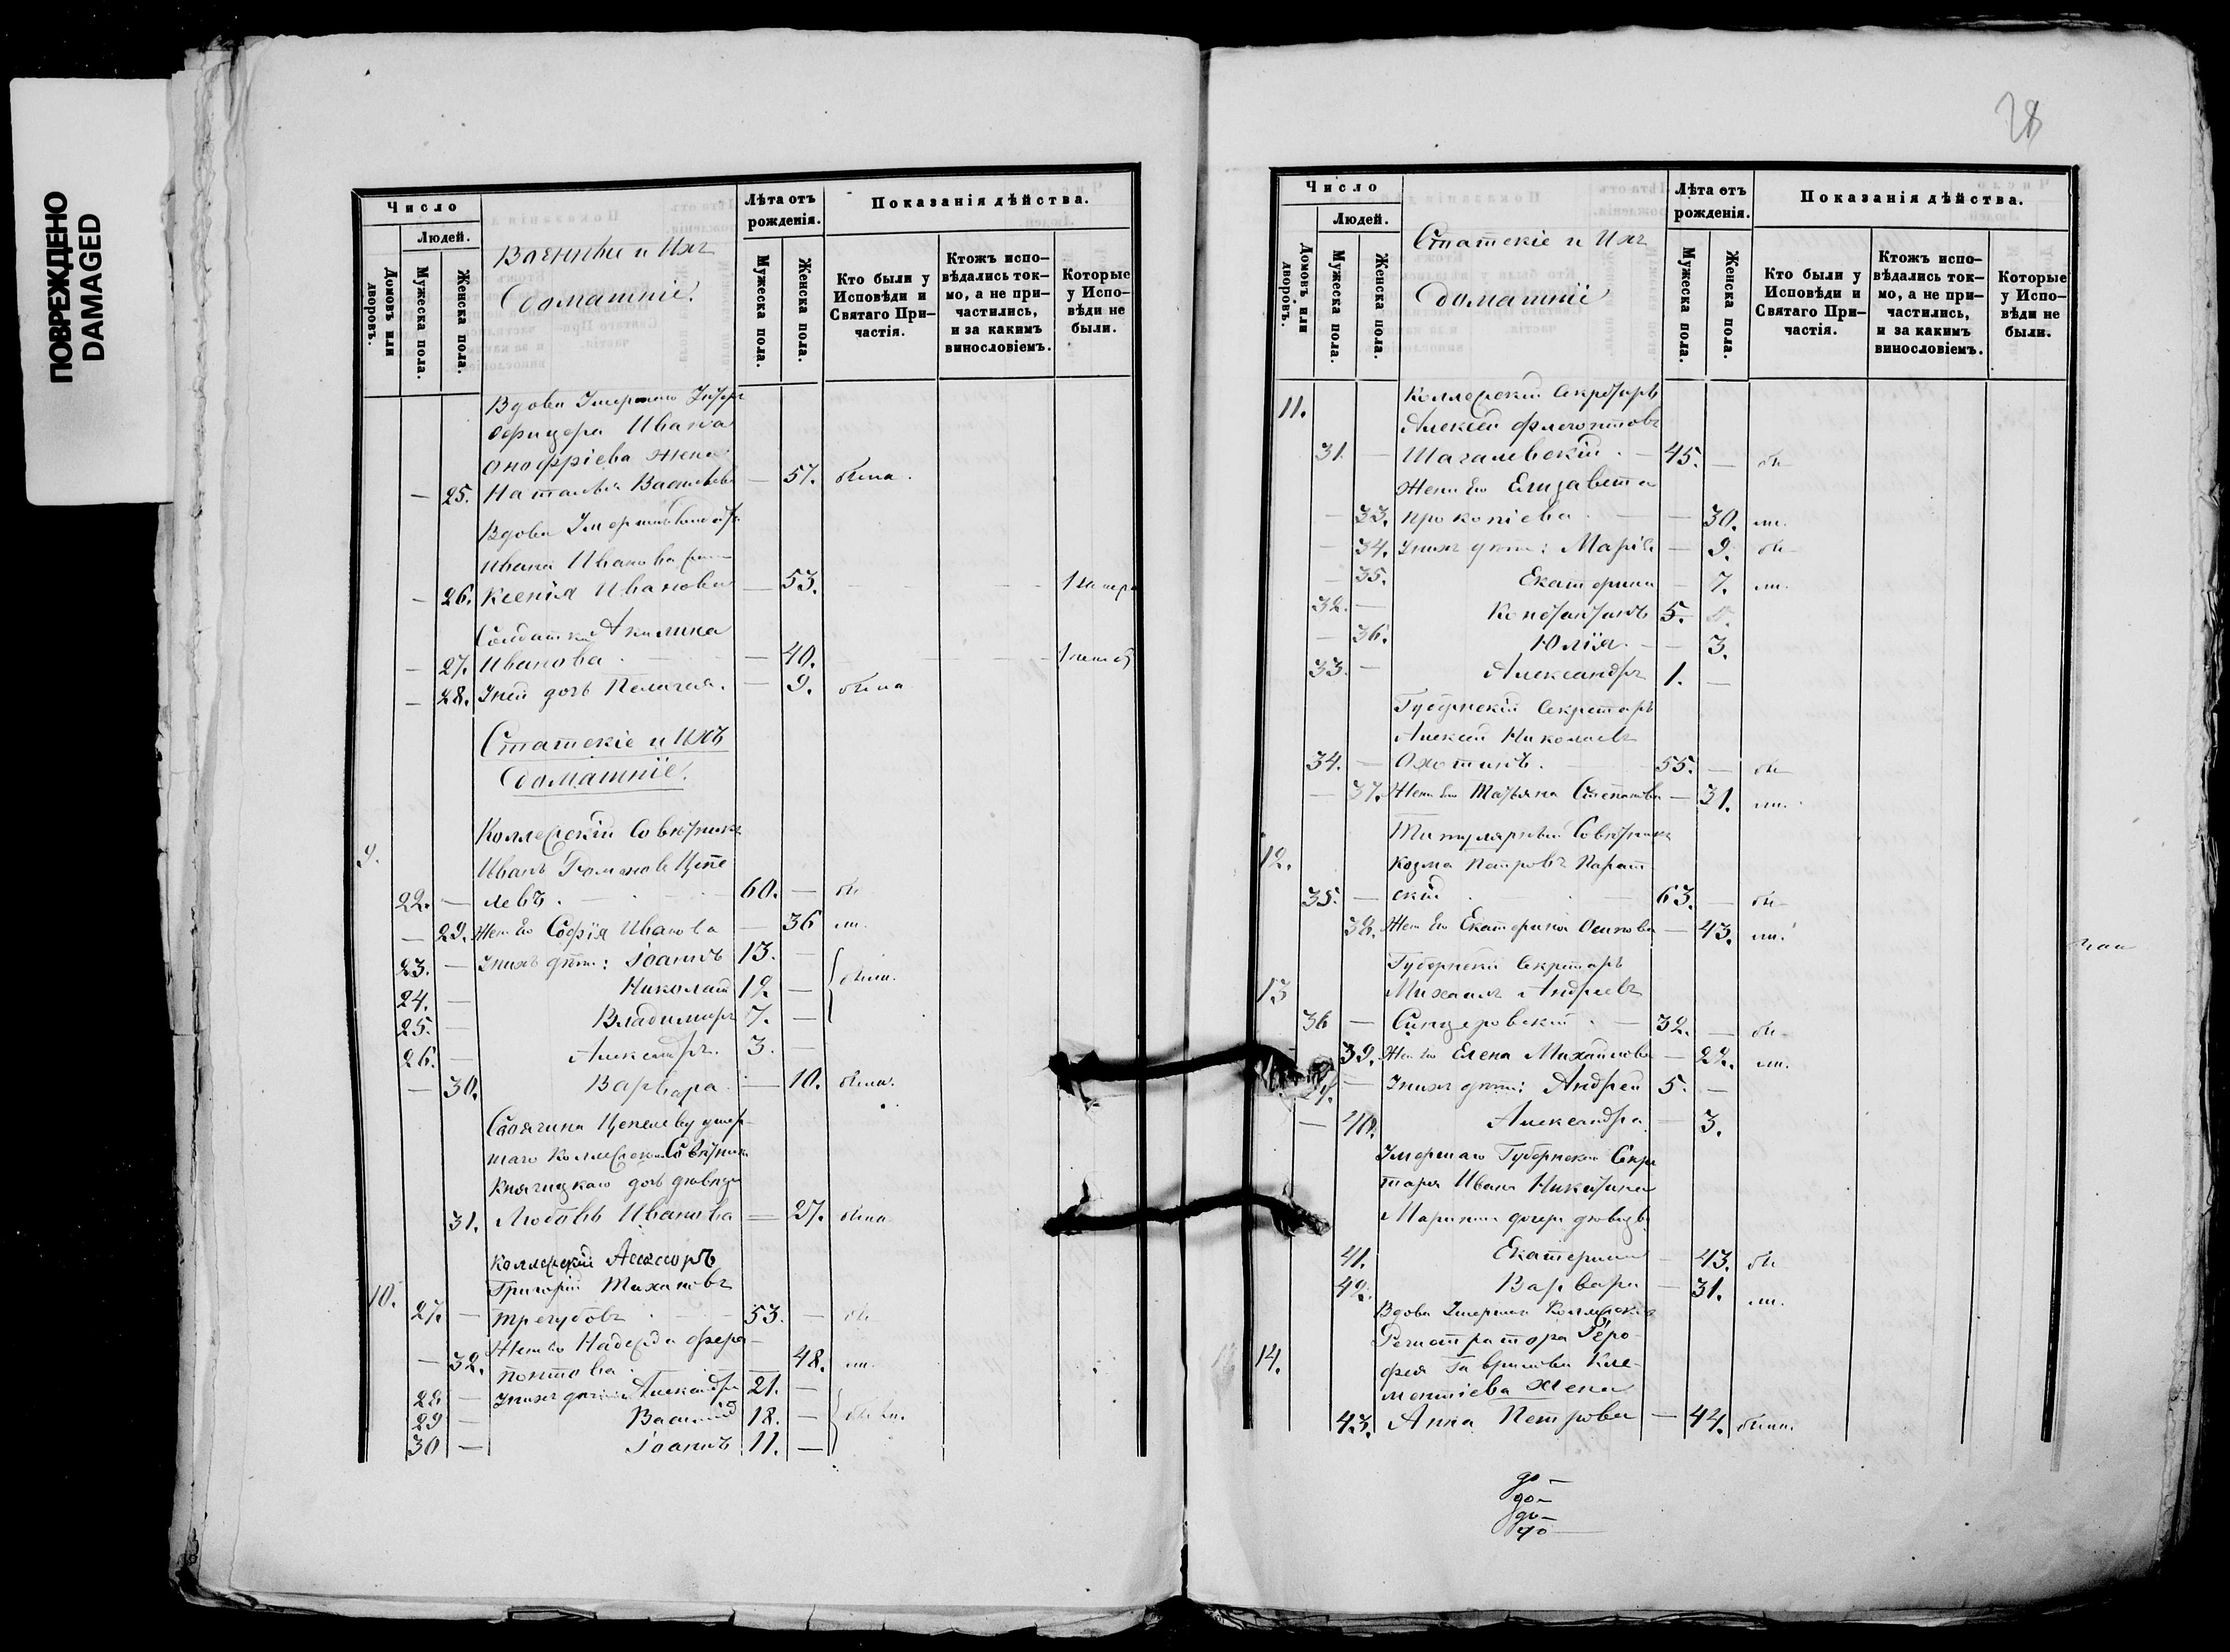 ПОВРЕЖДЕНО
DAMAGED
28
Число
Людей.
Домовъ или дворовъ.
Мужеска пола.
Женска пола.
Военные и Ихъ
Домашніе.
Лѣта отъ рожденія.
Мужеска пола.
Женска пола.
Показанія дѣйства.
Кто были у Исповѣди и Святаго При-частія.
Ктожъ испо-вѣдались ток-мо, а не при-частились, и за какимъ винословіемъ.
Которые у Испо-вѣди не были.
Вдова Умершаго
Офицера Ивана
Онофріева жена
— 25. Наталья Васильева — 57. была.
Вдова
Ивана Иванова
— 26. Ксенія Иванова — 53.
Солдатка Акилина
— 27. Иванова — 40.
— 28. Уней дочь Пелагея. — 9. была
Статскіе и Ихъ
Домашніе.
Коллежскій Совѣтникъ
9. Иванъ Романовъ Цепе
22. — левъ. 60. — бы
— 29. Жена Его Софія Иванова — 36 ли.
23. — Унихъ дѣти: Іоаннъ 13. —
24. — Николай 12 — были.
25. — Владимиръ 7. —
26. — Александръ. 3. —
— 30. Варвара — 10. была.
Своячина Цепелеву умер-
шаго Коллежскаго Совѣтника
дочь дѣвица
31. Любовь Иванова — 27. была
Коллежскій Ассесоръ
10. Григорій Тихановъ
27. — Трегубовъ 53. — бы
Жена Его Надежда Фера-
— 32. понтова — 48. ли.
28 — Унихъ дѣти Александръ 21. —
29 — Василій 18. — были.
30 — Іоаннъ 11. —
Число
Людей.
Домовъ или дворовъ.
Мужеска пола.
Женска пола.
Статскіе и Ихъ
Домашніе
Лѣта отъ рожденія.
Мужеска пола.
Женска пола.
Показанія дѣйства.
Кто были у Исповѣди и Святаго При-частія.
Ктожъ испо-вѣдались ток-мо, а не при-частились, и за какимъ винословіемъ.
Которые у Испо-вѣди не были.
11. Коллежскій Секретарь
Алексѣй Флегонтовъ
31. — Шагалевскій. — 45. — бы
Жена Его Елизавета
— 33. Прокопіева — 30. ли.
— 34. Унихъ дѣти: Марія — 9. бы
— 35. Екатерина — 7. ли.
32. — Константинъ 5.
— 36. Юлія — 3.
33. — Александръ 1. —
Губернскій Секретарь
Алексѣй Николаевъ
34. — Охотинъ. 55. — бы
— 37. Жена Его Татьяна Степанова — 31. ли.
Титулярный Совѣтникъ
12. Козма Петровъ
35. — скій 63. — бы
38. Жена Его Екатерина Осипова — 43. ли.
Губернскій Секретарь
13 Михаилъ Андреевъ
36 — 32. — бы
39. Жена Его Елена Михайлова — 22. ли.
— Унихъ дѣти: Андрей 5. —
— 40. Александра — 3.
Умершаго Губернскаго Секре
таря Ивана Никитина
дочери дѣвицы
41. Екатерина — 43. бы
42. Варвара — 31. ли.
Вдова Умершаго Коллежскаго
Регистратора Еро-
14. фея Гаврилова Кле-
ментіева жена
43. Анна Петрова — 44. была.
до —
до —
до —
до —